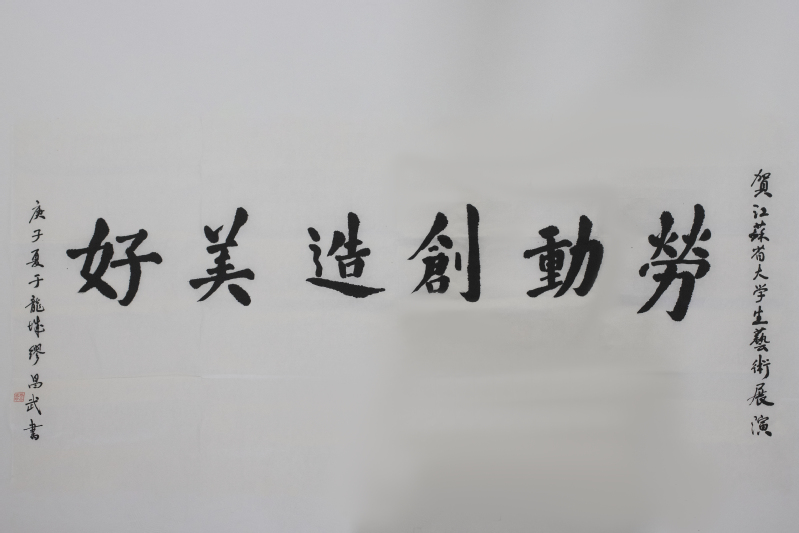 贺江蘇省大学生藝術展演
勞動創造美好
庚子夏于龍城缪昌武書